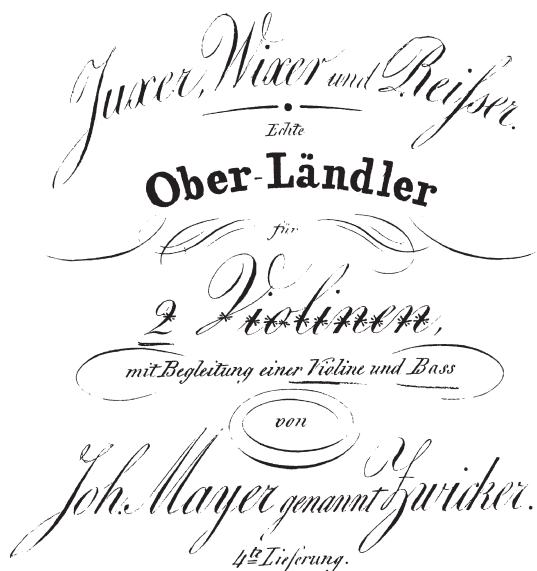 Juxer, Wixer und Reiſser.
Echte
Ober-Ländler
für
2 Violinen,
mit Begleitung einer Violine und Bass
von
Joh. Mayer genannt Zwicker.
4te Lieferung.